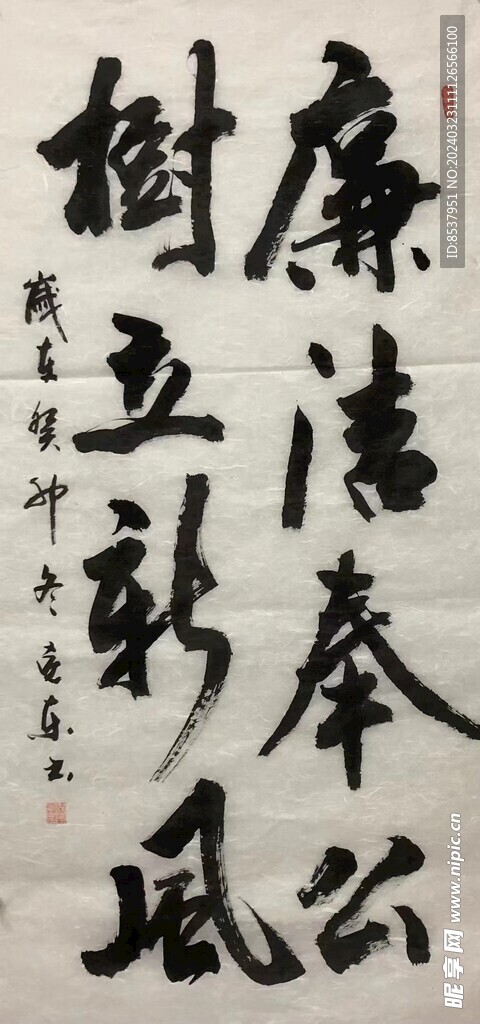 廉洁奉公
樹立新風
歲在癸卯冬克東书
ID:8537951 NO:20240323111126566100
昵享网 www.nipic.cn